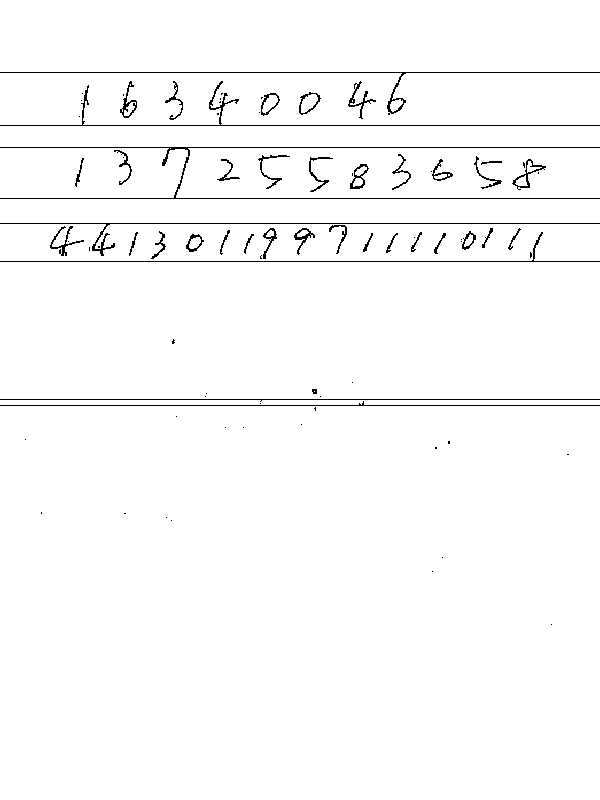 16340046
13725583658
441301199711110111